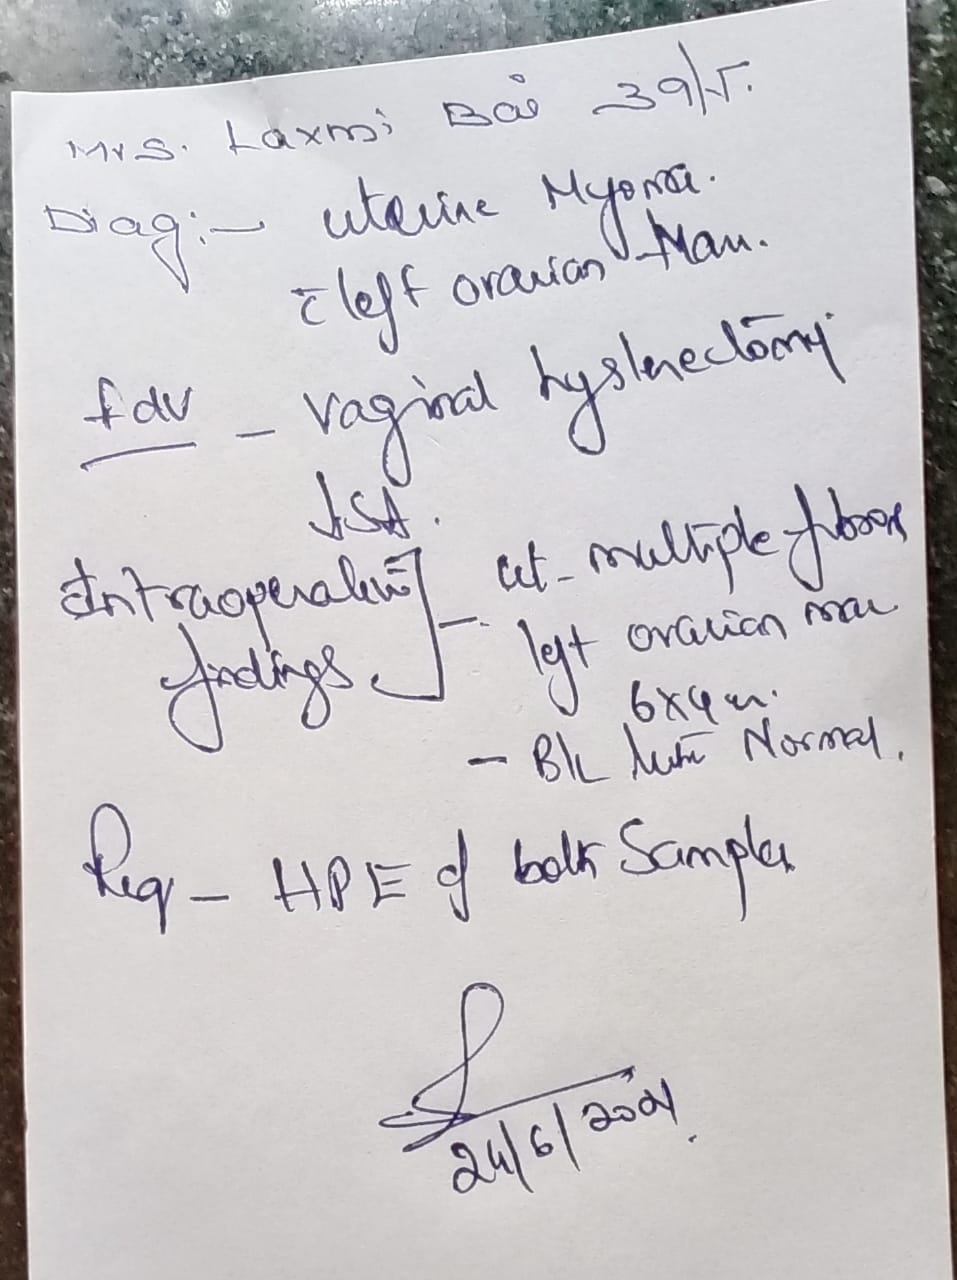 Mrs. Laxmi Bai 39/F.
Diag:- uterine Myoma.
c̄ left ovarian Mass.
- vaginal hysterectomy
Intraoperative findings - ut - multiple fibroids
left ovarian mass
6x4 cm.
- Normal.
Req - HPE of both Samples
24/6/2021